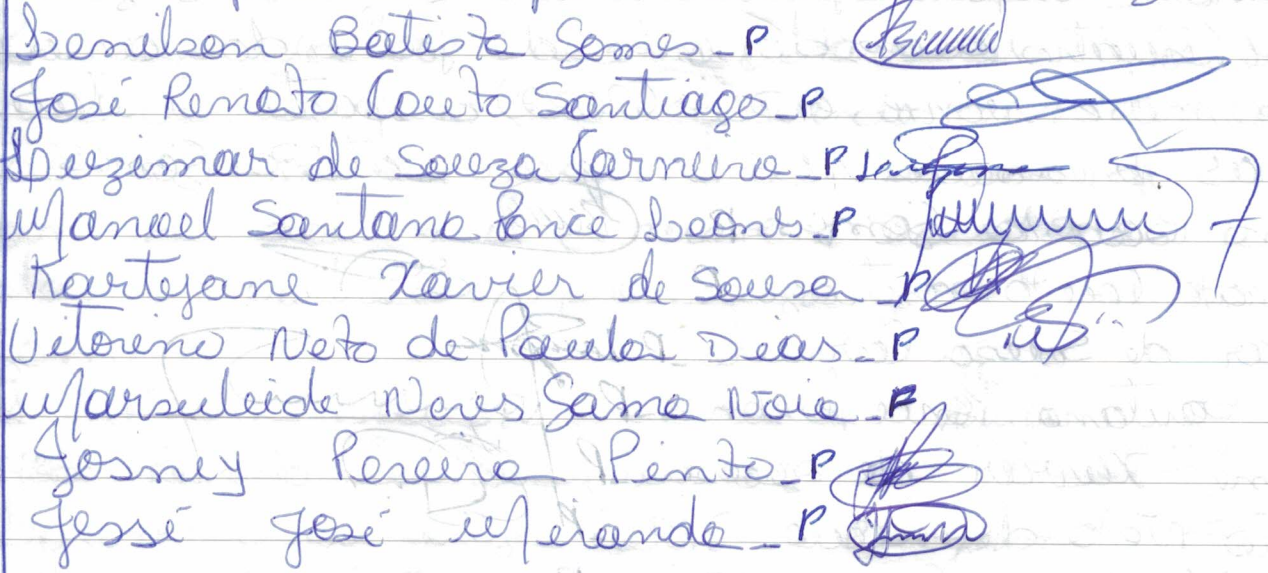 Denilson Batista Gomes - P
José Renato Couto Santiago - P
Luzimar de Souza Carneiro - P
Manoel Santana Ponce Leons - P
Kartejane Xavier de Sousa - P
Vitorino Neto de Paula Dias - P
Marsuleide Neves Gama Noia - F
Josney Pereira Pinto - P
Jessé José Miranda - P